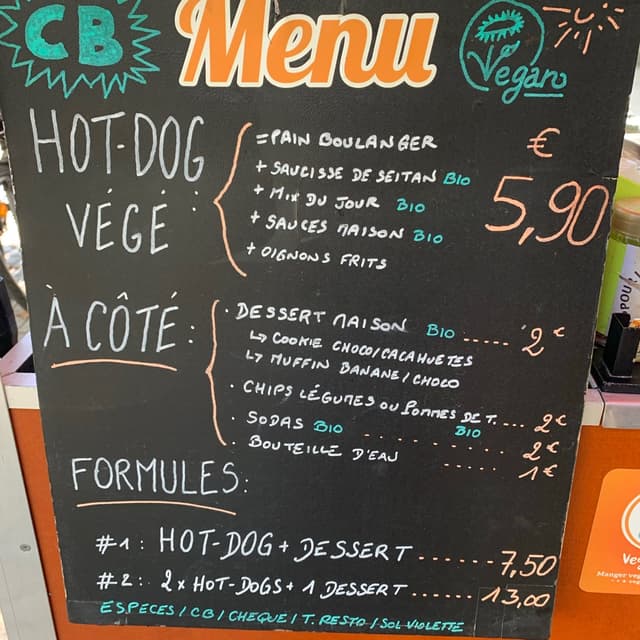 CB Menu Vegan
HOT-DOG VÉGÉ :
= PAIN BOULANGER €
+ SAUCISSE DE SEITAN BIO
+ MIX DU JOUR BIO 5,90
+ SAUCES MAISON BIO
+ OIGNONS FRITS
À CÔTÉ :
. DESSERT MAISON BIO ..... 2€
↳ COOKIE CHOCO/CACAHUETES
↳ MUFFIN BANANE/CHOCO
. CHIPS LÉGUMES OU POMMES DE T. ... 2€
BIO
. SODAS BIO ........ 2€
. BOUTEILLE D'EAU ...... 1€
FORMULES:
#1: HOT-DOG + DESSERT ...... 7,50
#2: 2x HOT-DOGS + 1 DESSERT ...... 13,00
ESPECES / CB / CHEQUE / T. RESTO / SOL VIOLETTE